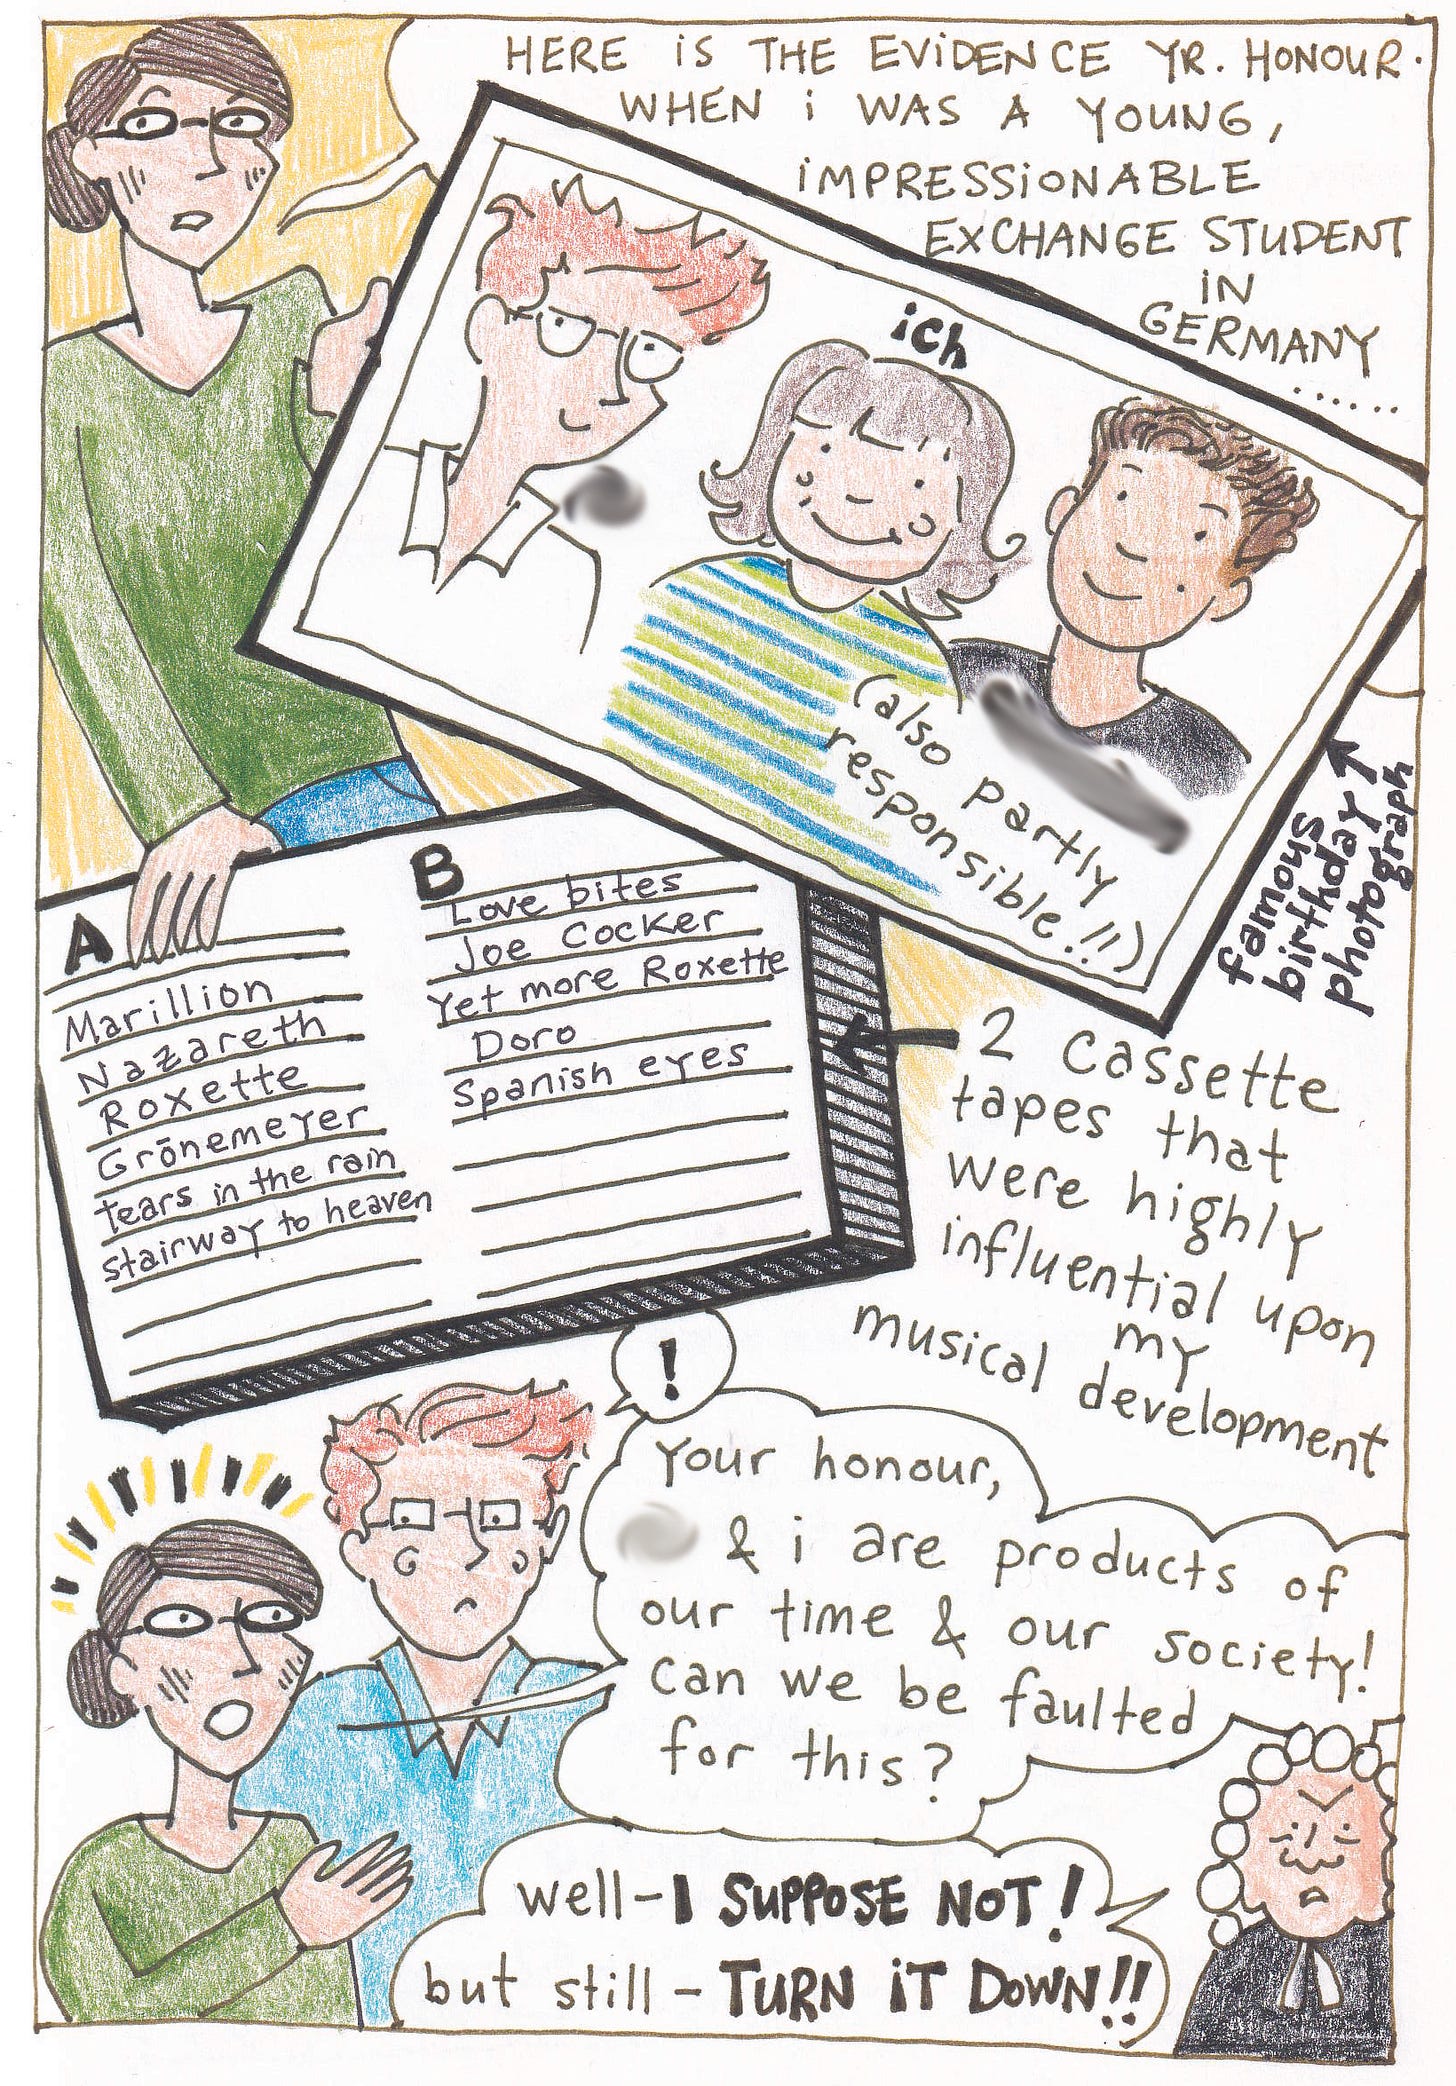 HERE iS THE EViDENCE YR. HONOUR.
WHEN i WAS A YOUNG,
iMPRESSiONABLE
EXCHANGE STUDENT
iN
GERMANY
.......
ich
(also partly
responsible!!)
famous
birthday
photograph
A
Marillion
Nazareth
Roxette
Grönemeyer
tears in the rain
stairway to heaven
B
Love bites
Joe Cocker
Yet more Roxette
Doro
Spanish eyes
2 cassette
tapes that
were highly
influential upon
my
musical development
!
Your honour,
& i are products of
our time & our society!
can we be faulted
for this?
well – I SUPPOSE NOT!
but still – TURN iT DOWN!!